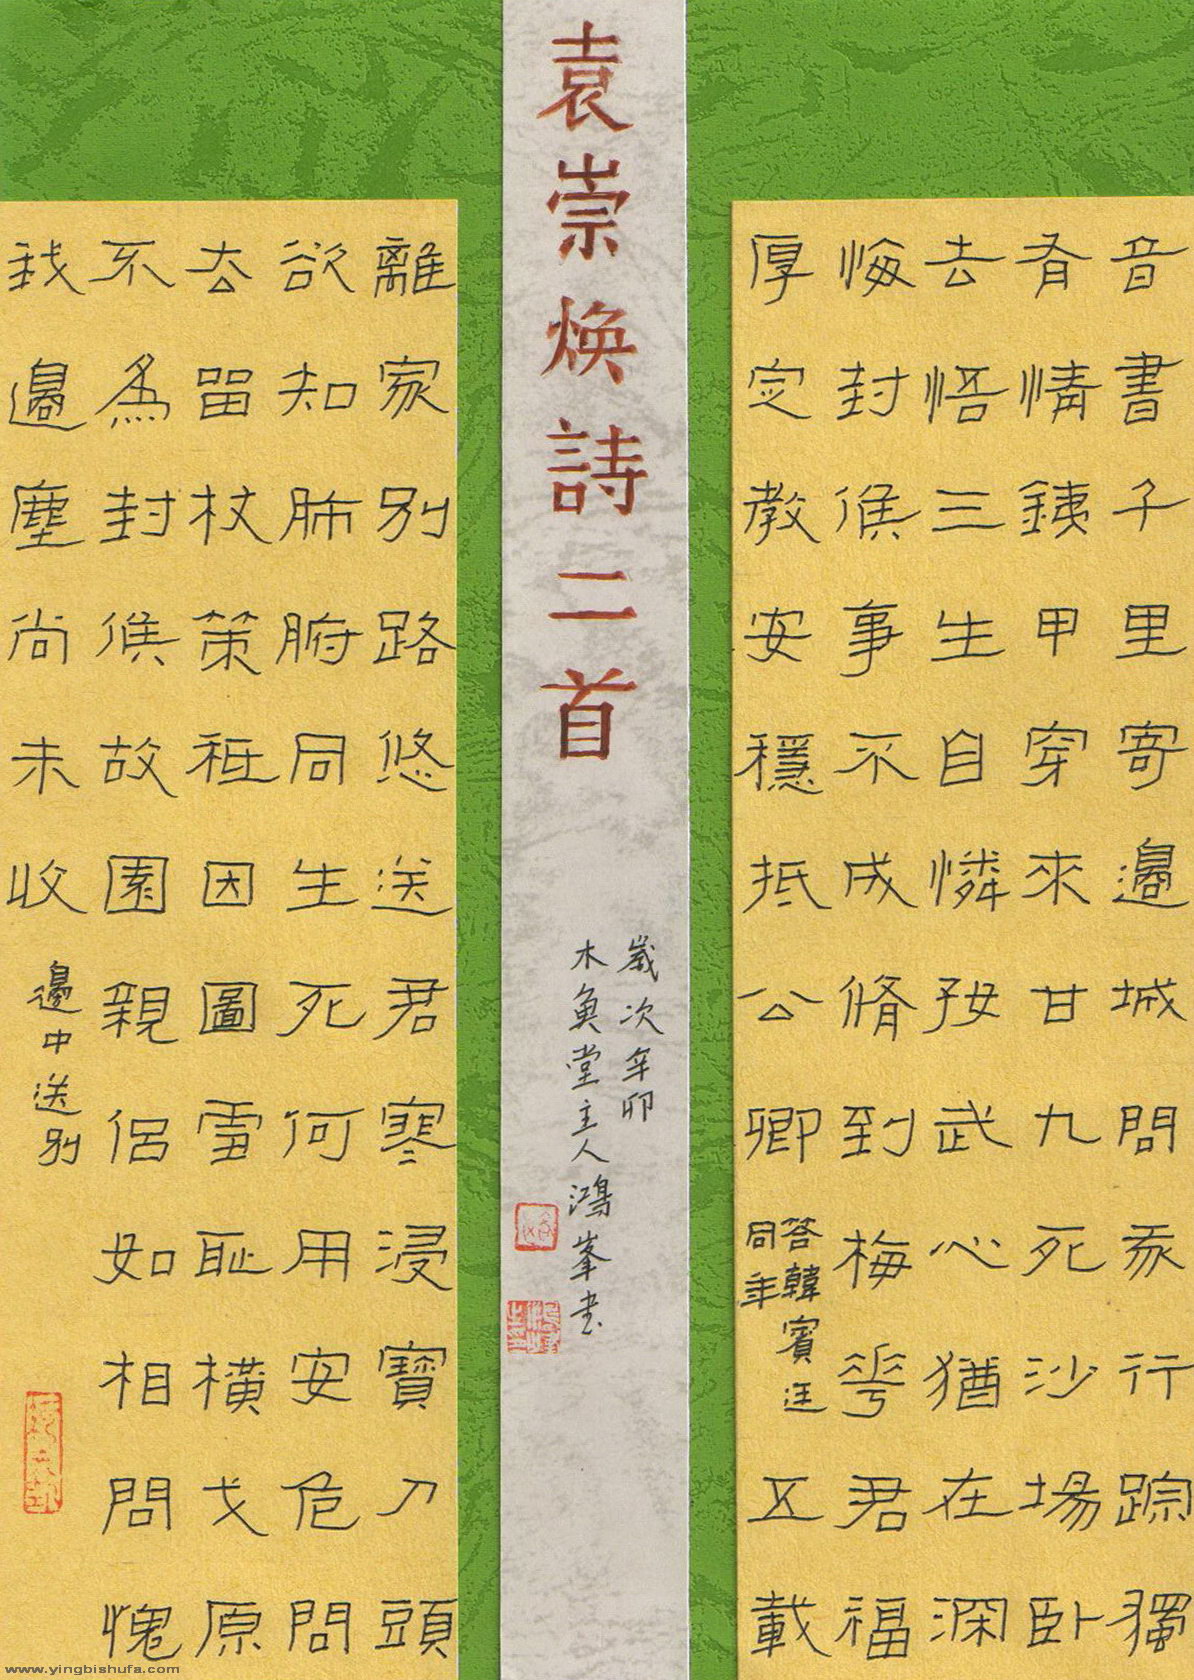 音書千里寄邊城問行踪獨
有情銕甲穿來甘九死沙場臥
去悟三生自憐投武心猶在深
悔封侯事不成脩到梅花君福
厚定教安穩抵公卿
答韓賓廷
同年
五載
袁崇煥詩二首
歲次辛卯
木魚堂主人鴻峯書
離家別路悠送君寒浸寶刀頭
欲知肺腑同生死何用安危問
去留杖策秪因圖雪恥橫戈原
不為封侯故園親侶如相問愧
我邊塵尚未收
邊中送別
www.yingbishufa.com